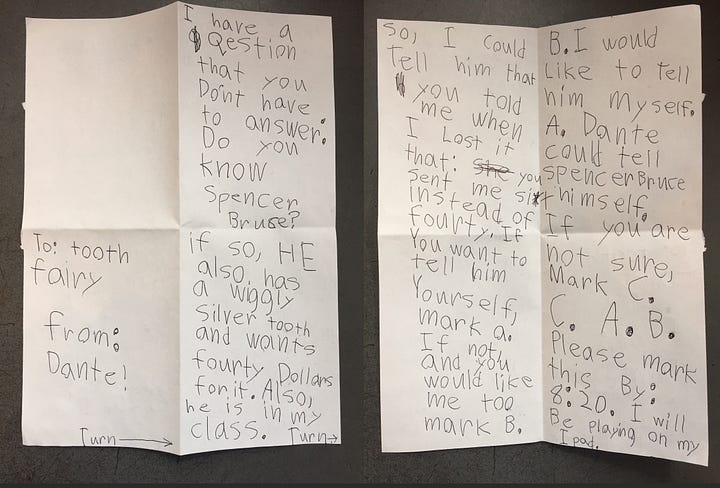 To: tooth
fairy
from:
Dante!
Turn→
I have a
Qestion
that you
Dont have
to answer:
Do you
know
Spencer
Bruse?
if so, HE
also has
a wiggly
silver tooth
and wants
fourty Dollars
for it. Also,
he is in my
class. Turn→
So, I could
Tell him that
you told
me when
I Lost it
that: she you
sent me six
instead of
fourty. If
You want to
tell him
Yourself,
mark a.
If not,
and you
would like
me too
mark B.
B. I would
Like to Tell
him myself.
A. Dante
could tell
spencer Bruce
himself.
If you are
not sure,
Mark C.
C. A. B.
Please mark
this By:
8:20. I will
Be playing on my
Ipad.